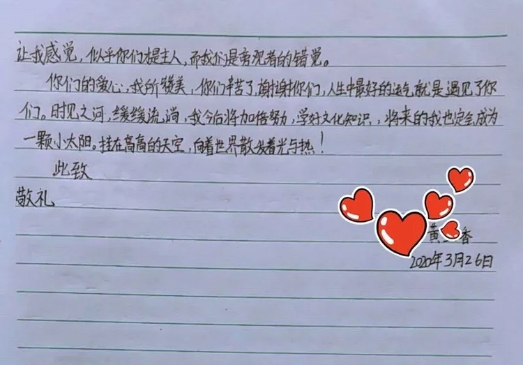 让我感觉，似乎你们是主人，而我们是旁观者的错觉。
你们的爱心，我所赞美，你们辛苦了，谢谢你们，人生中最好的运气就是遇见了你
们。时光之河，缓缓流淌，我今后将加倍努力，学好文化知识，，将来的我也定会成为
一颗小太阳。挂在高高的天空，向着世界散发着光与热！
此致
敬礼
黄 香
2020年3月26日